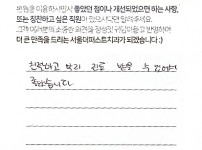 병원을 이용하시면서 좋았던 점이나 개선되었으면 하는 사항,
또는 칭찬하고 싶은 직원이 있으시다면 알려주세요.
그께 여러분의 소중한 의견을 경청하고 반영하여
더 큰 만족을 드리는 서울더퍼스트치과가 되겠습니다 :)
친절하고 빠른 진료 받을 수 있어서
좋았습니다